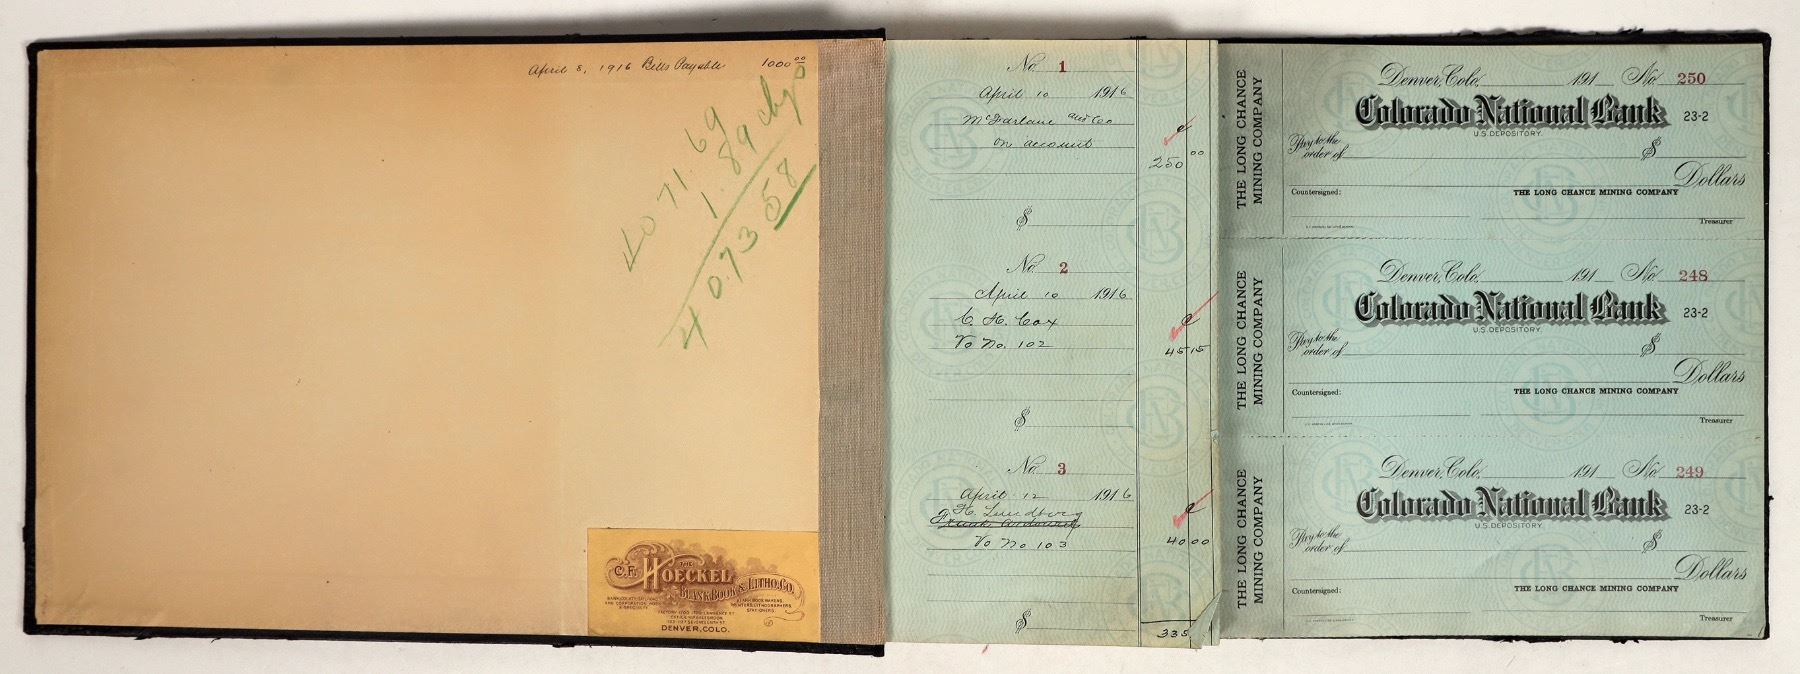 April 8, 1916 Bills Payable 1000 00
4071.69
1.89 chgd
4073 58
THE
C.F. HOECKEL
BLANK BOOK & LITHO. CO.
DENVER, COLO.
No. 1
April 10 1916
McFarlane and Co
on account
250 00
$
No. 2
April 10 1916
C. H. Cox
Vo No. 102
45 15
$
No. 3
April 12 1916
H. Lundberg
Vo No 103
40 00
$
335
THE LONG CHANCE
MINING COMPANY
Denver, Colo. 191 No. 250
Colorado National Bank 23-2
U.S. DEPOSITORY.
Pay to the
order of $
Dollars
Countersigned: THE LONG CHANCE MINING COMPANY
Treasurer
THE LONG CHANCE
MINING COMPANY
Denver, Colo. 191 No. 248
Colorado National Bank 23-2
U.S. DEPOSITORY.
Pay to the
order of $
Dollars
Countersigned: THE LONG CHANCE MINING COMPANY
Treasurer
THE LONG CHANCE
MINING COMPANY
Denver, Colo. 191 No. 249
Colorado National Bank 23-2
U.S. DEPOSITORY.
Pay to the
order of $
Dollars
Countersigned: THE LONG CHANCE MINING COMPANY
Treasurer